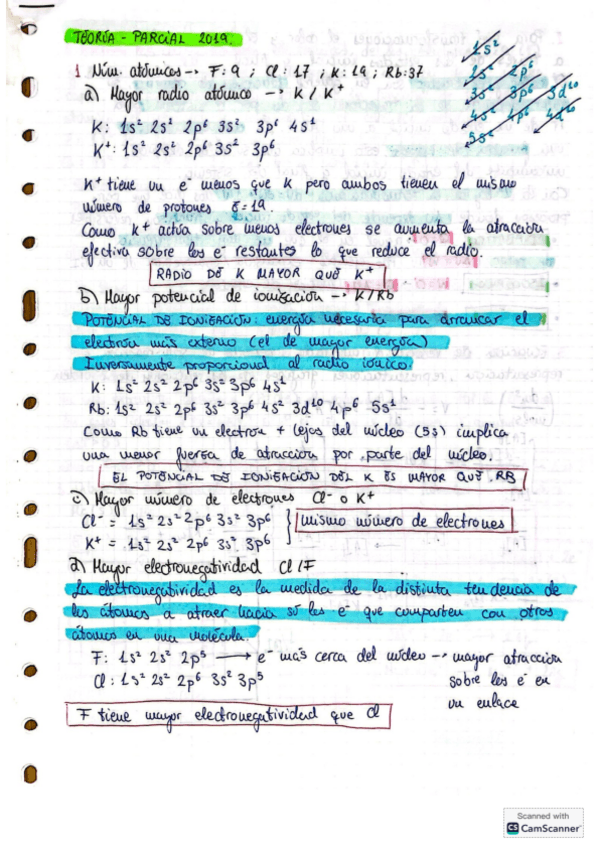 TEORÍA - PARCIAL 2019.
1s²
2s² 2p⁶
3s² 3p⁶ 3d¹⁰
4s² 4p⁶ 4d¹⁰
5s²
1 Núm. atómicos → F: 9 ; Cl: 17 ; K: 19 ; Rb: 37
a) Mayor radio atómico → K / K⁺
K: 1s² 2s² 2p⁶ 3s² 3p⁶ 4s¹
K⁺: 1s² 2s² 2p⁶ 3s² 3p⁶
K⁺ tiene un e⁻ menos que K pero ambos tienen el mismo
número de protones = 19
Como K⁺ actúa sobre menos electrones se aumenta la atracción
efectiva sobre los e⁻ restantes lo que reduce el radio.
RADIO DE K MAYOR QUE K⁺
b) Mayor potencial de ionización → K/Rb
POTENCIAL DE IONIZACIÓN: energía necesaria para arrancar el
electrón más externo (el de mayor energía)
Inversamente proporcional al radio iónico.
K: 1s² 2s² 2p⁶ 3s² 3p⁶ 4s¹
Rb: 1s² 2s² 2p⁶ 3s² 3p⁶ 4s² 3d¹⁰ 4p⁶ 5s¹
Como Rb tiene un electrón + lejos del núcleo (5s) implica
una menor fuerza de atracción por parte del núcleo.
EL POTENCIAL DE IONIZACIÓN DEL K ES MAYOR QUE RB
c) Mayor número de electrones Cl⁻ o K⁺
Cl⁻ = 1s² 2s² 2p⁶ 3s² 3p⁶ } mismo número de electrones
K⁺ = 1s² 2s² 2p⁶ 3s² 3p⁶
d) Mayor electronegatividad Cl/F
La electronegatividad es la medida de la distinta tendencia de
los átomos a atraer hacia sí los e⁻ que comparten con otros
átomos en una molécula.
F: 1s² 2s² 2p⁵ → e⁻ más cerca del núcleo → mayor atracción
Cl: 1s² 2s² 2p⁶ 3s² 3p⁵ sobre los e⁻ en
un enlace
F tiene mayor electronegatividad que Cl
Scanned with
CS CamScanner